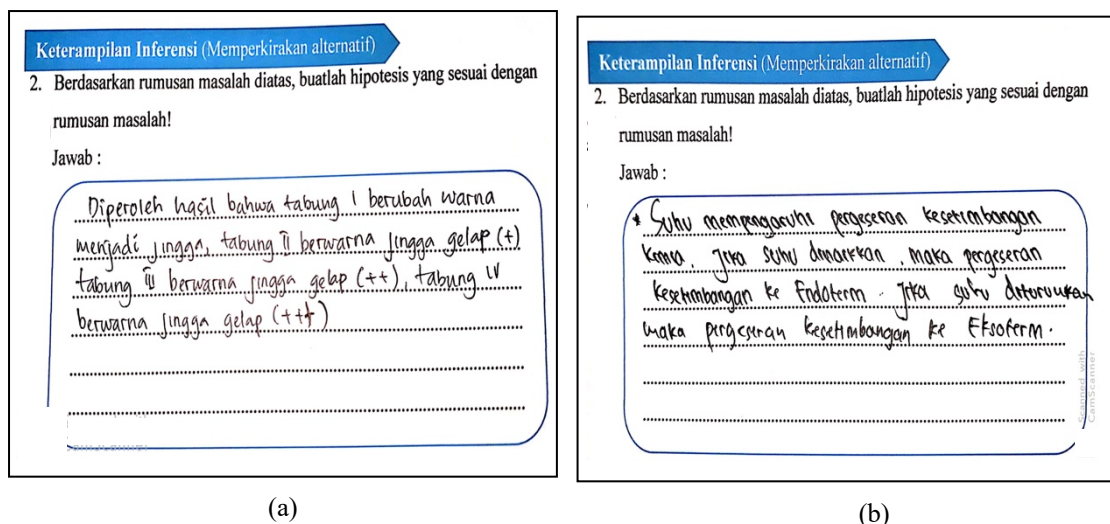 Keterampilan Inferensi (Memperkirakan alternatif)
2. Berdasarkan rumusan masalah diatas, buatlah hipotesis yang sesuai dengan
rumusan masalah!
Jawab :
Diperoleh hasil bahwa tabung I berubah warna
menjadi jingga, tabung II berwarna jingga gelap (+)
tabung III berwarna jingga gelap (++), tabung IV
berwarna jingga gelap (+++)
(a)
Keterampilan Inferensi (Memperkirakan alternatif)
2. Berdasarkan rumusan masalah diatas, buatlah hipotesis yang sesuai dengan
rumusan masalah!
Jawab :
* Suhu mempengaruhi pergeseran kesetimbangan
kimia. Jika suhu dinaikkan, maka pergeseran
kesetimbangan ke Endoterm. Jika suhu diturunkan
maka pergeseran kesetimbangan ke Eksoterm.
Scanned with
CamScanner
(b)